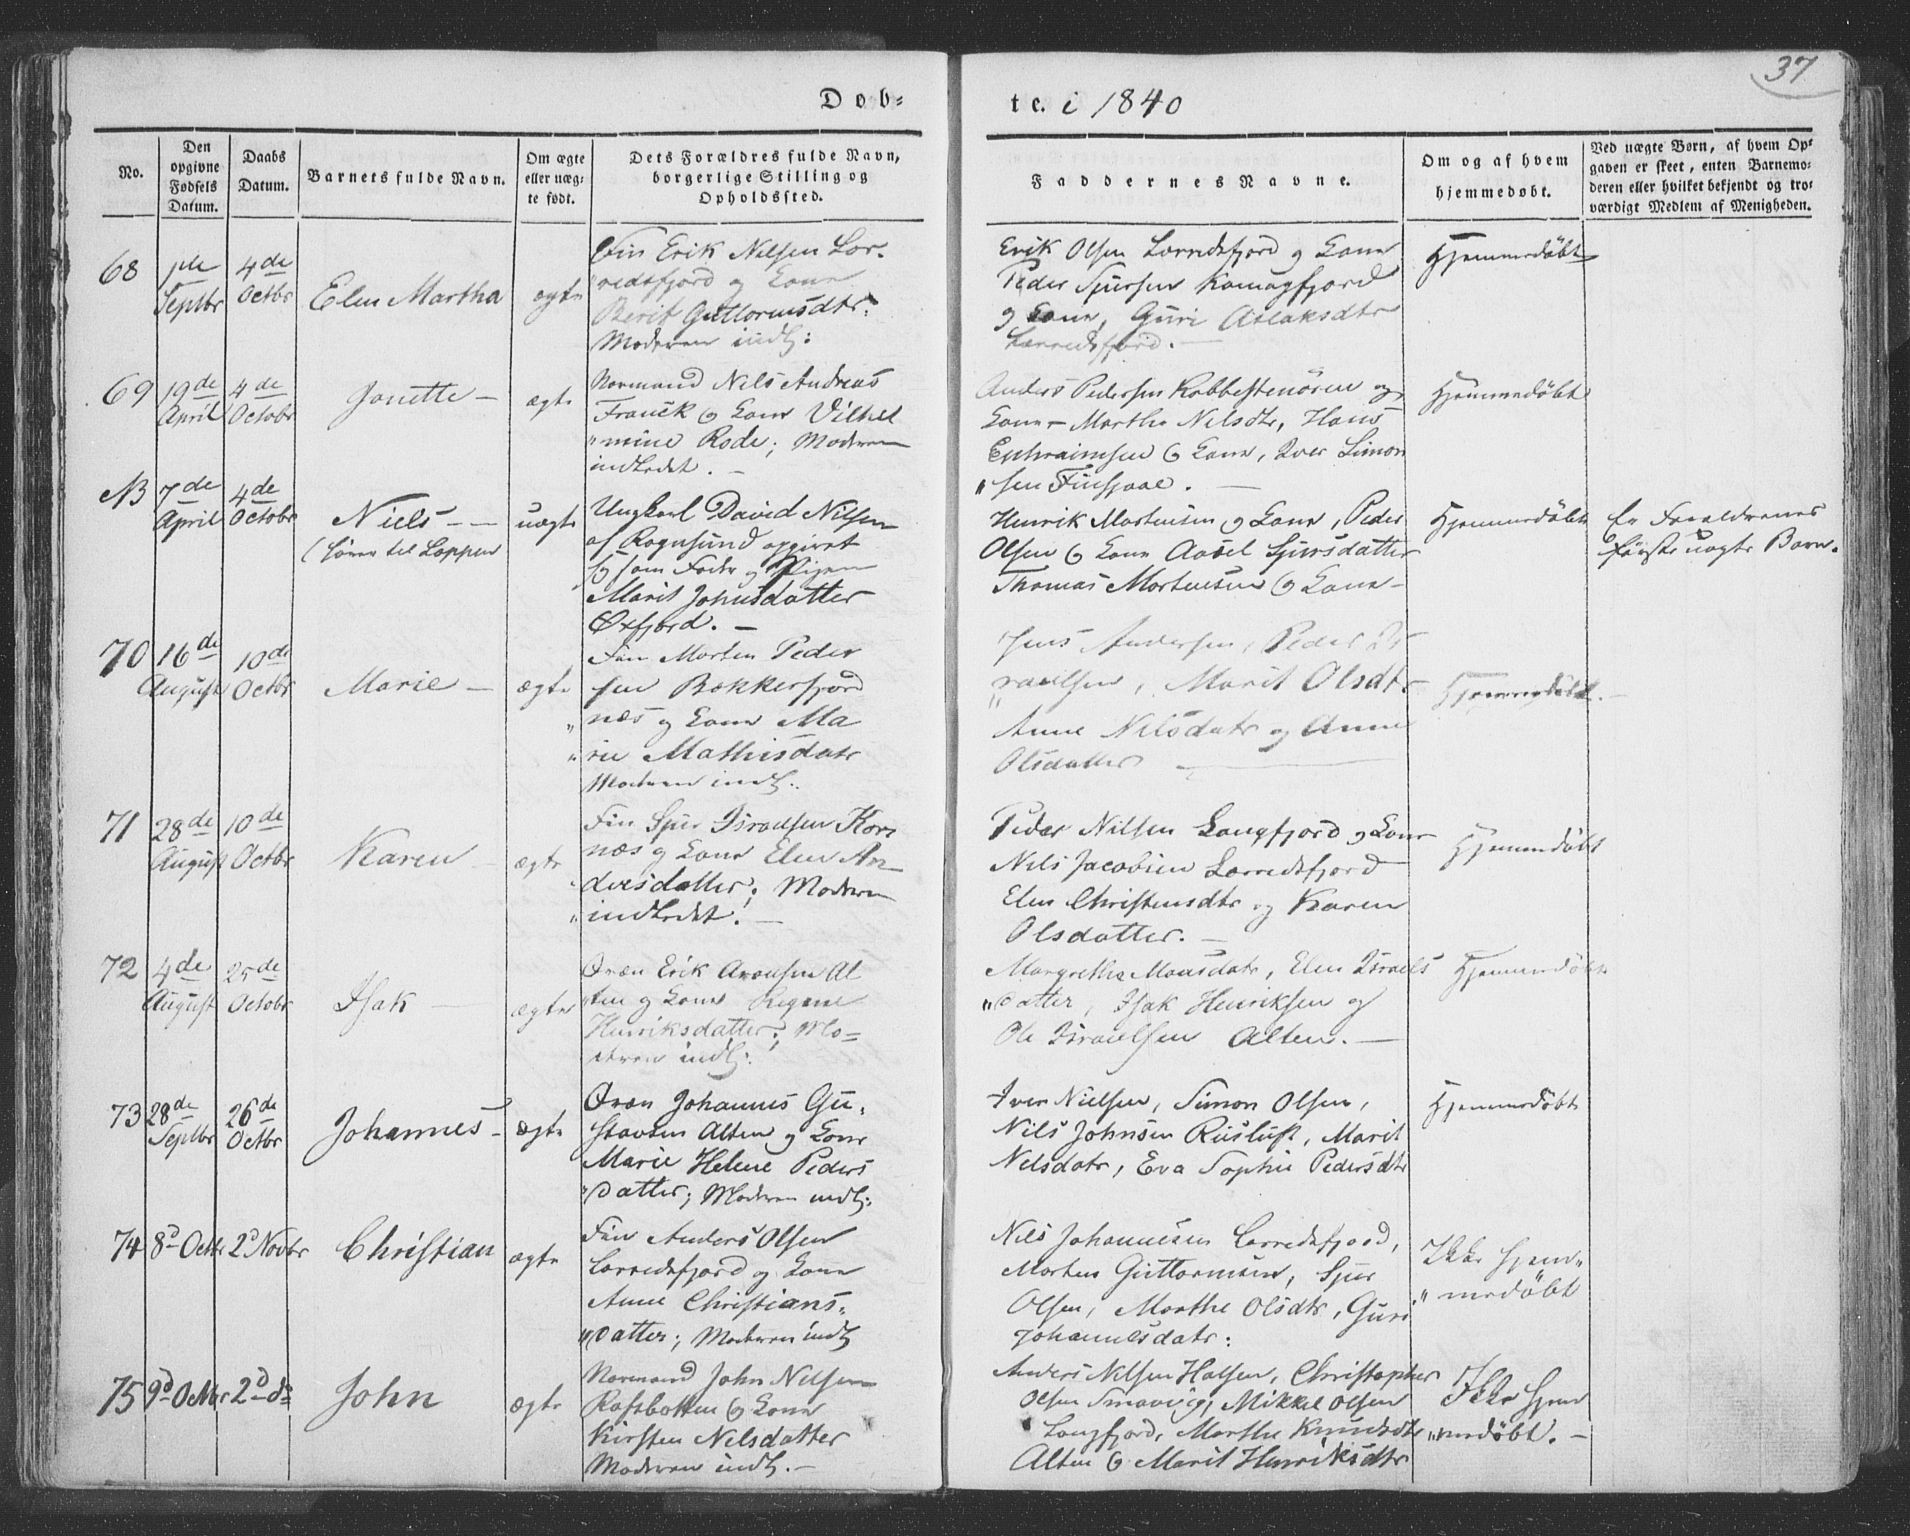 37
Døb-
te. i 1840
No.
Den opgivne Fødsels Datum.
Daabs Datum.
Barnets fulde Navn.
Om ægte eller uægte født.
Dets Forældres fulde Navn, borgerlige Stilling og Opholdssted.
Faddernes Navne.
Om og af hvem hjemmedøbt.
Ved uægte Børn, af hvem Opgaven er skeet, enten Barnemoderen eller hvilket bekjendt og troværdigt Medlem af Menigheden.
68
1ste Septbr
4de Octbr
Elen Martha
ægte
Fin Erik Nilsen Ler-
redsfjord og Kone
Berit Guttormsdtr.
Moderen indl:
Erik Olsen Lerredsfjord og Kone
Peder Sjursen Komagfjord
og Kone, Guri Aslaksdtr
Lerredsfjord. —
Hjemmedøbt
69
19de April
4de Octobr
Jonette —
ægte
Normand Nils Andreas
Franck og Kone Vilhel
"mine Rode; Moderen
indledet. —
Anders Pedersen Kobbestenøren og
Kone — Marthe Nilsdtr, Hans
Ephraimsen og Kone, Iver Simon
"sen Finsjaae. —
Hjemmedøbt
NB
7de April
4de Octobr
Niels — —
(hører til Loppen
uægte
Ungkarl David Nilsen
af Rognsund opgivet
sig som Fader og Pigen
Marit Johnsdatter
Øxfjord. —
Henrik Mortensen og Kone, Peder
Olsen og Kone Aasel Sjursdatter
Thomas Mortensen og Kone —
Hjemmedøbt
Er Forældrenes
første uægte Barn.
70
16de August
10de Octbr
Marie —
ægte
Fin Morten Peder
sen Bekkerfjord
"næs og Kone Ma
"rie Mathisdatr
Moderen indl:
Jens Andersen, Peder Is
"raelsen, Marit Olsdtr
Anne Nilsdatr og Anne
Olsdatter —
Hjemmedøbt. —
71
28de August
10de Octbr
Karen —
ægte
Fin Sjur Israelsen Kors
næs og Kone Elen An-
dersdatter; Moderen
"indledet. —
Peder Nilsen Langfjord og Kone
Nils Jacobsen Lerredsfjord
Elen Christensdtr og Karen
Olsdatter. —
Hjemmedøbt
72
4de August
25de Octobr
Isak —
ægte
Qvæn Erik Aronsen Al
"ten og Kone Regine
Henriksdatter; Mo-
deren indl:
Margrethe Monsdatr, Elen Israels
"datter, Isak Henriksen og
Ole Israelsen Alten. —
Hjemmedøbt
73
28de Septbr
26de Octbr
Johannes —
ægte
Qvæn Johannes Gu-
stavsen Alten og Kone
Marie Helene Peders
"datter; Moderen indl:
Iver Nielsen, Simon Olsen,
Nils Johnsen Rusluft, Marit
Nelsdatr, Eva Sophie Pedersdtr
Hjemmedøbt
74
8d Octbr
2d Novbr
Christian
ægte
Fin Anders Olsen
Lerredsfjord og Kone
Anne Christians-
"datter; Moderen indl
Nils Johannesen Lerredsfjord,
Morten Guttormsen, Sjur
Olsen, Marthe Olsdtr, Guri
Johannesdatr:
Ikke hjem-
"medøbt
75
9d Octbr
2d do
John
ægte
Normand John Nelsen
Rafsbotten og Kone
Kirsten Nelsdatter
Moderen indl. —
Anders Nelsen Halsen, Christopher
Olsen Smavig, Mikkel Olsen
Langfjord, Marthe Knudsdtr
Alten og Marit Henriksdtr
Ikke hjem
"medøbt. —